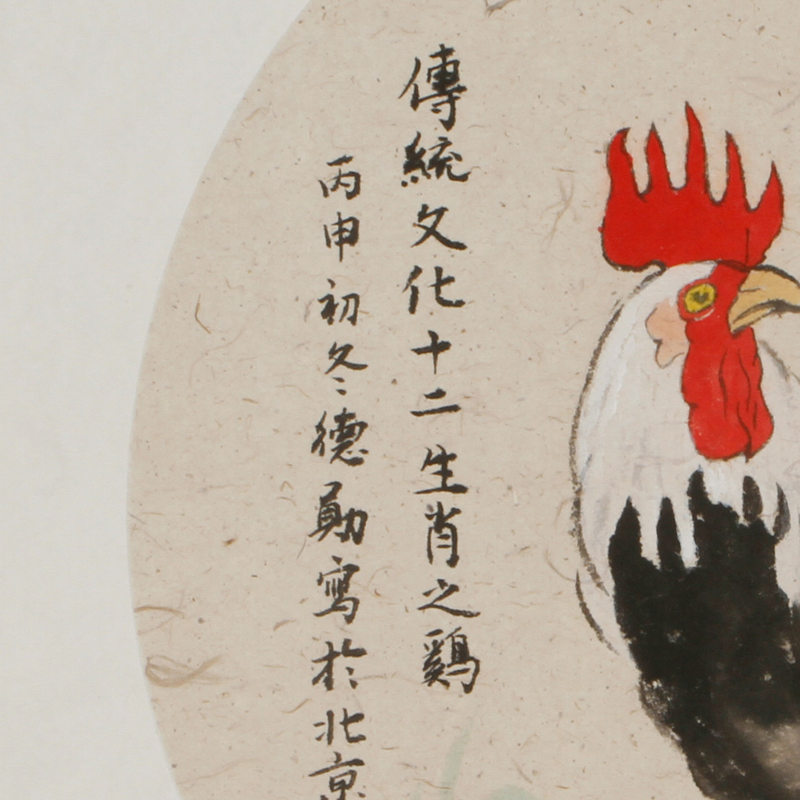 傳統文化十二生肖之鷄
丙申初冬德勛寫於北京